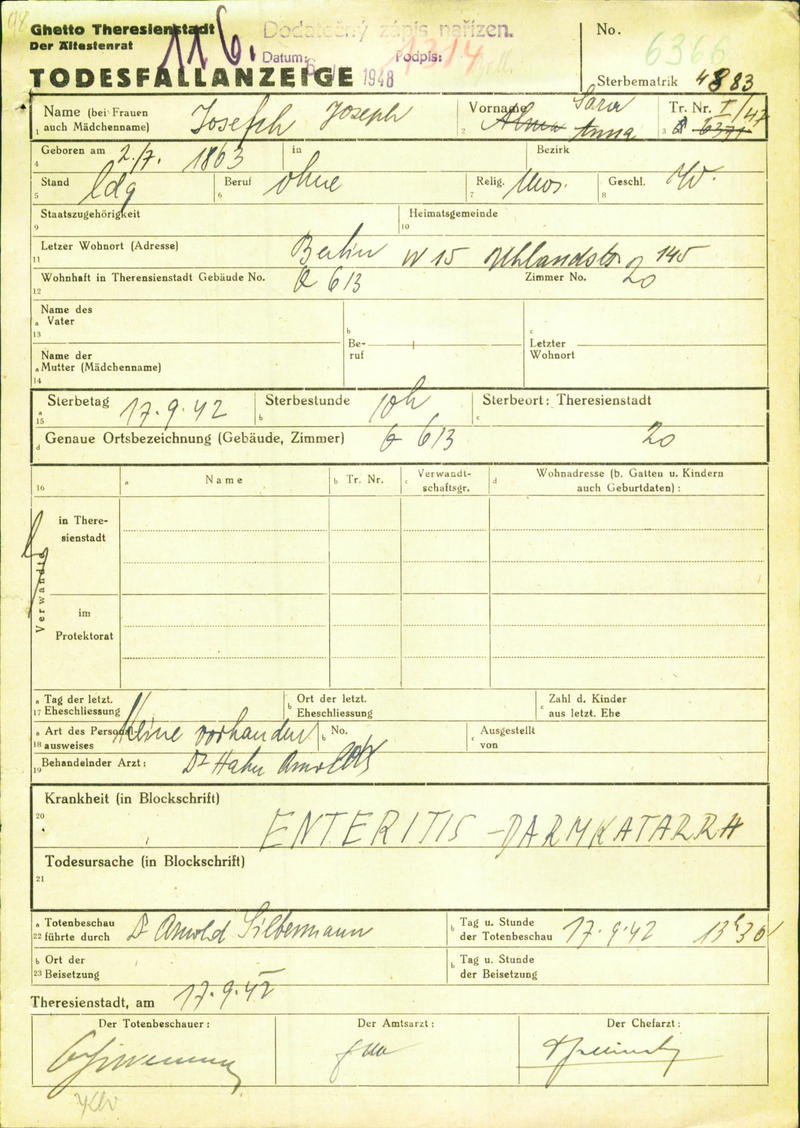 Ghetto Theresienstadt
Der Ältestenrat
TODESFALLANZEIGE
116.
Dodatečný zápis nařízen.
Datum: 1948 Podpis:
1314
No. 6366
Sterbematrik 4883
Name (bei Frauen
1 auch Mädchenname) Joseph Joseph
2 Vorname Sara
Anna
3 Tr. Nr. I/47
6371
4 Geboren am 2./7. 1863 in Bezirk
5 Stand ldg 6 Beruf ohne 7 Relig. Mos. 8 Geschl. W.
9 Staatszugehörigkeit 10 Heimatsgemeinde
11 Letzer Wohnort (Adresse) Berlin W 15 Uhlandstr. 145
12 Wohnhaft in Therensienstadt Gebäude No. Q 613 Zimmer No. 20
a Name des
Vater
13
b Be-
ruf
c Letzter
Wohnort
a Name der
Mutter (Mädchenname)
14
a 15 Sterbetag 17.9.42 b Sterbestunde 10h c Sterbeort: Theresienstadt
d Genaue Ortsbezeichnung (Gebäude, Zimmer) Q 613 20
16 a Name b Tr. Nr. c Verwandt-
schaftsgr. d Wohnadresse (b. Gatten u. Kindern
auch Geburtdaten) :
Verwandte
in There-
sienstadt
im
Protektorat
a Tag der letzt.
17 Eheschliessung
b Ort der letzt.
Eheschliessung
c Zahl d. Kinder
aus letzt. Ehe
a Art des Personal
18 ausweises Keine vorhanden b No. c Ausgestellt
von
19 Behandelnder Arzt: Dr Hahn
Krankheit (in Blockschrift)
20 ENTERITIS - DARMKATARRH
Todesursache (in Blockschrift)
21
a Totenbeschau
22 führte durch Dr Arnold Silbermann
b Tag u. Stunde
der Totenbeschau 17.9.42 13h30
b Ort der
23 Beisetzung
b Tag u. Stunde
der Beisetzung
Theresienstadt, am 17.9.42
Der Totenbeschauer: Der Amtsarzt: Der Chefarzt: